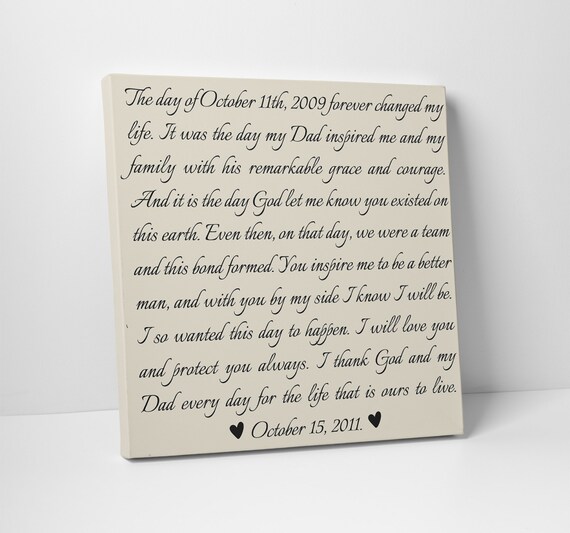 The day of October 11th, 2009 forever changed my
life. It was the day my Dad inspired me and my
family with his remarkable grace and courage.
And it is the day God let me know you existed on
this earth. Even then, on that day, we were a team
and this bond formed. You inspire me to be a better
man, and with you by my side I know I will be.
I so wanted this day to happen. I will love you
and protect you always. I thank God and my
Dad every day for the life that is ours to live.
October 15, 2011.